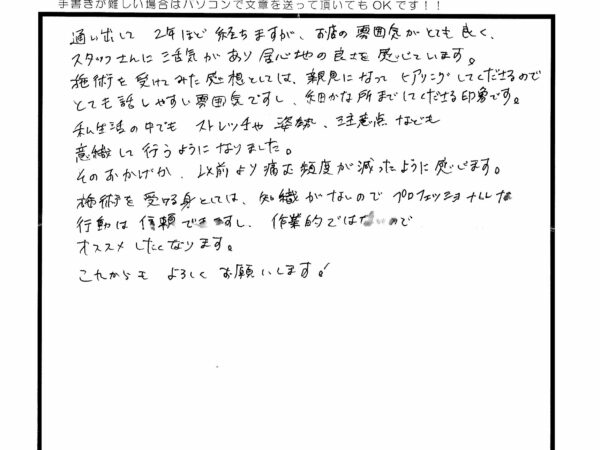 手書きが難しい場合はパソコンで文章を送って頂いてもOKです！！
通い出して 2年ほど経ちますが、お店の雰囲気がとても良く、
スタッフさんに活気があり居心地の良さを感じています。
施術を受けてみた感想としては、親身になってヒアリングしてくださるので
とても話しやすい雰囲気ですし、細かな所までしてくださる印象です。
私生活の中でも ストレッチや 姿勢、注意点なども
意識して行うようになりました。
そのおかげか、以前より痛む頻度が減ったように感じます。
施術を受ける身としては、知識がないので プロフェッショナルな
行動は 信頼できますし、作業的ではないので
オススメしたくなります。
これからも よろしく お願いします！